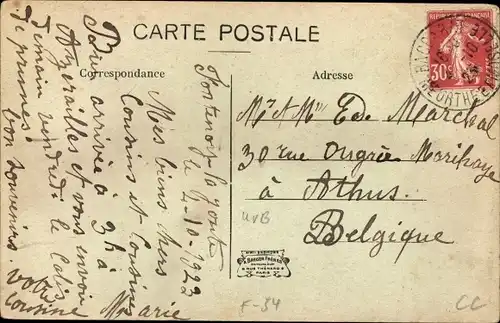 CARTE POSTALE
Correspondance
Adresse
Fontenoy la Joute
le 4-10-1923
Mes biens chers
Cousins et Cousines
Bien arrivée à 3h à
Azerailles et vous envoi
demain vendredi le colis
de prunes.
bon souvenirs.
votre
cousine Marie
Mr et Mme Ed. Marchal
30 rue Ougrée Marihaye
à Athus.
Belgique
RÉPUBLIQUE FRANÇAISE
30c
UVB
PARIS
F-34
CC